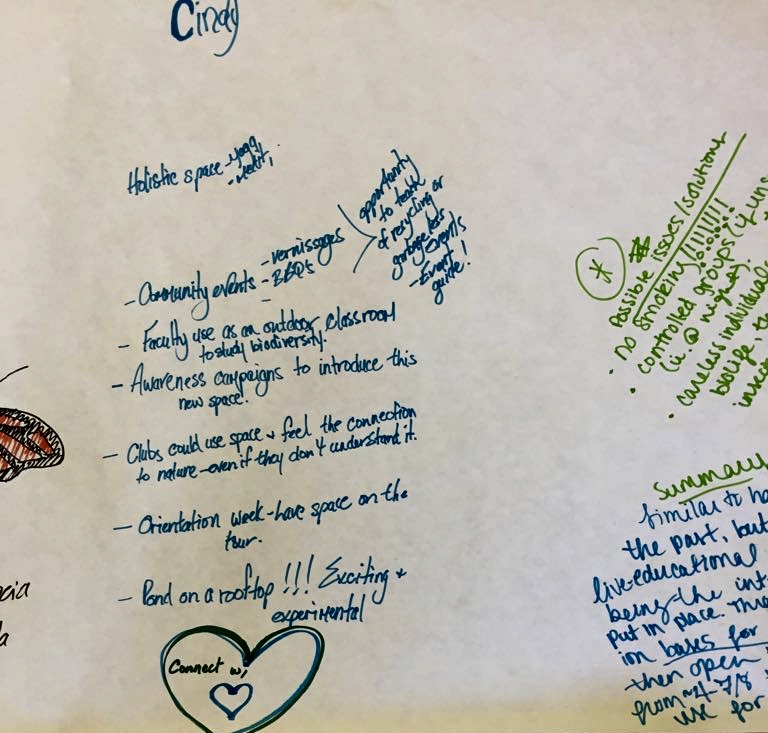 Cindy
Holistic space - yoga
- medit,
- Community events - vernissages
- BBQ's
-
opportunity
to teach
of recycling or
garbageless
events
- Event
guide!
- Faculty use as an outdoor classroom
to study biodiversity.
- Awareness campaigns to introduce this
new space!
- Clubs could use space + feel the connection
to nature - even if they don't understand it.
- Orientation week - have space on the
tour.
- Pond on a rooftop !!! Exciting +
experimental
Connect w/
*
possible issues/solutions
• no smoking!!!!!!!!
• controlled groups (if uns
(ii. @ night).
• careless individual
biolife, t
insec
Summary
Similar to ho
the past, but
live-educational
being the int
put in place.
ion bases for
then open
from ~4-7/8
use for